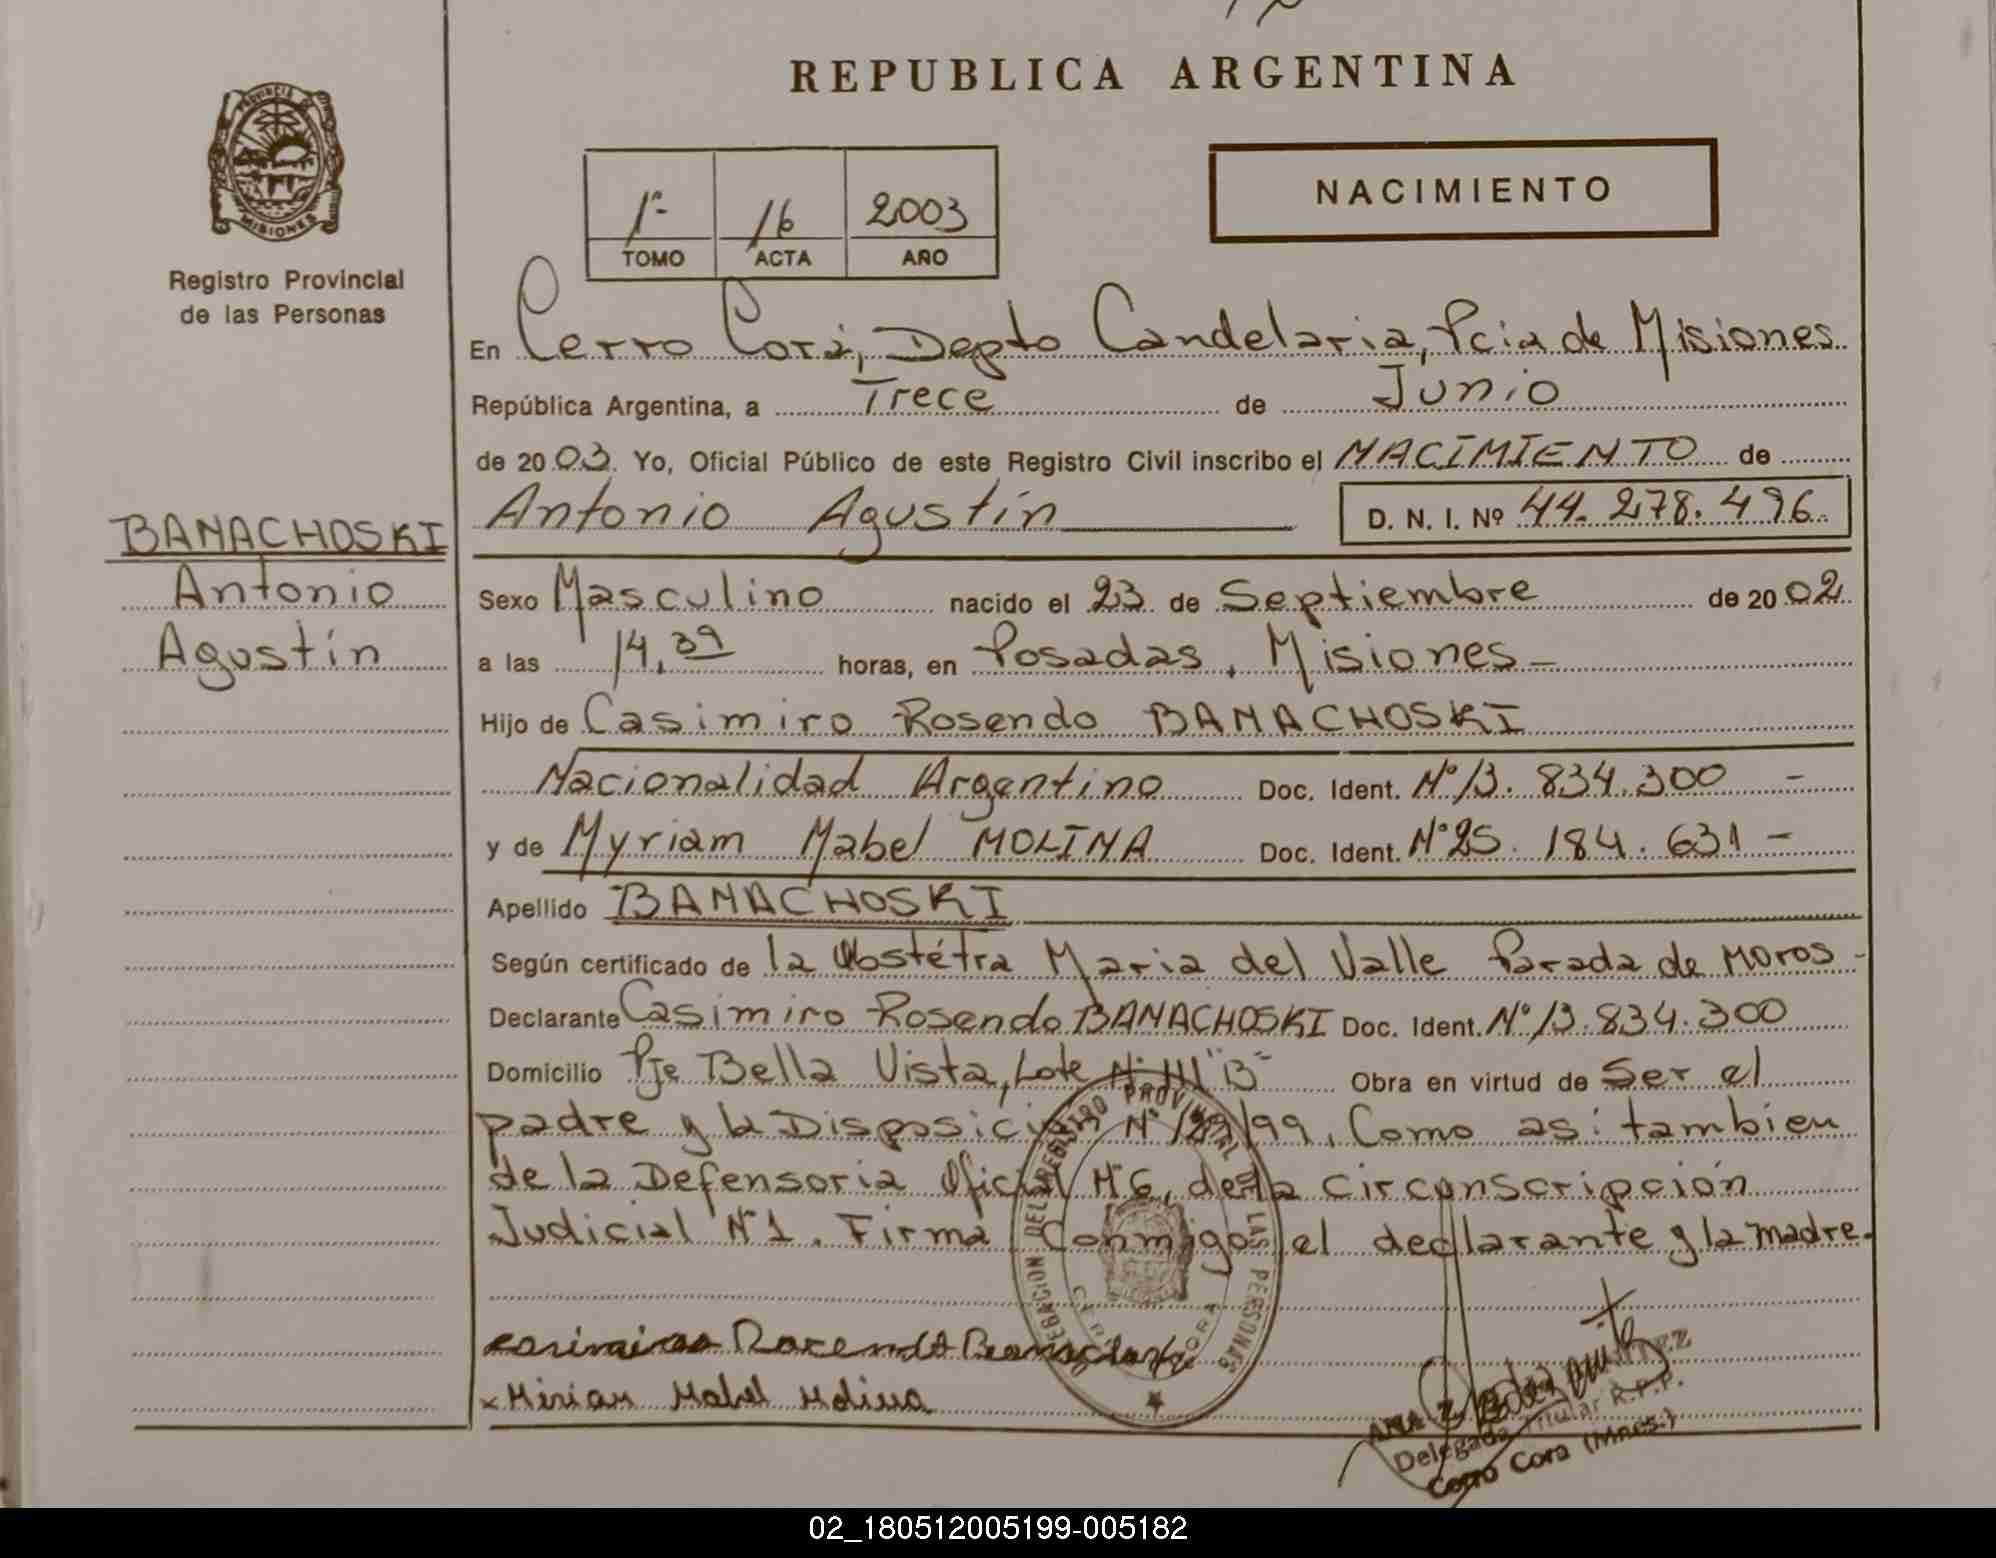 REPUBLICA ARGENTINA
PROVINCIA DE MISIONES
Registro Provincial
de las Personas
1º 16 2003
TOMO ACTA AÑO
NACIMIENTO
En Cerro Corá, Depto Candelaria, Pcia de Misiones
República Argentina, a Trece de Junio
de 2003. Yo, Oficial Público de este Registro Civil inscribo el NACIMIENTO de
Antonio Agustín D. N. I. Nº 44.278.496
BANACHOSKI
Antonio
Agustín
Sexo Masculino nacido el 23 de Septiembre de 2002
a las 14,39 horas, en Posadas, Misiones-
Hijo de Casimiro Rosendo BANACHOSKI
Nacionalidad Argentino Doc. Ident. Nº 13.834.300 -
y de Myriam Mabel MOLINA Doc. Ident. Nº 25.184.631 -
Apellido BANACHOSKI
Según certificado de la Obstétra Maria del Valle Parada de Moros -
Declarante Casimiro Rosendo BANACHOSKI Doc. Ident. Nº 13.834.300
Domicilio Pje Bella Vista, Lote Nº "B" Obra en virtud de Ser el
padre y la Disposición Nº /99, Como así tambien
de la Defensoria Oficial Nº 6, de la Circunscripción
Judicial Nº 1. Firma Conmigo el declarante y la madre.
DELEGACION DEL REGISTRO PROVINCIAL DE LAS PERSONAS
CERRO CORA
Casimiro Rosendo
x Mirian Mabel Molina
Delegada Titular R.P.P.
Cerro Cora (Mnes.)
02_180512005199-005182